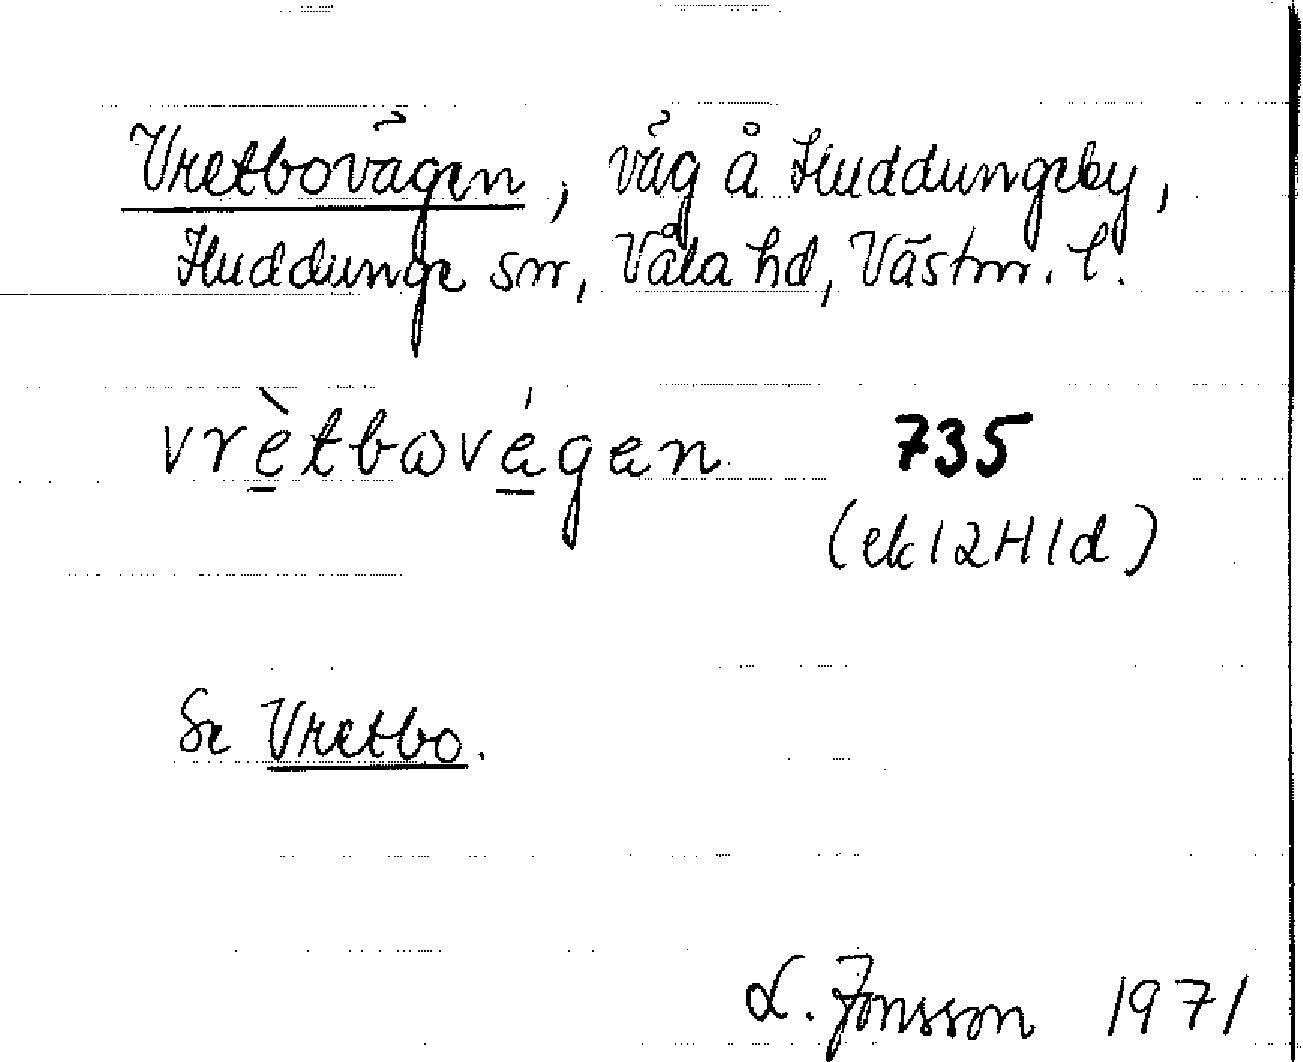 Vretbovägen, väg å Huddungeby,
Huddunge sn, Våla hd, Västm. l.
vrètbωvégen 735
(ek 12H1d)
Se Vretbo.
L. Jonsson 1971